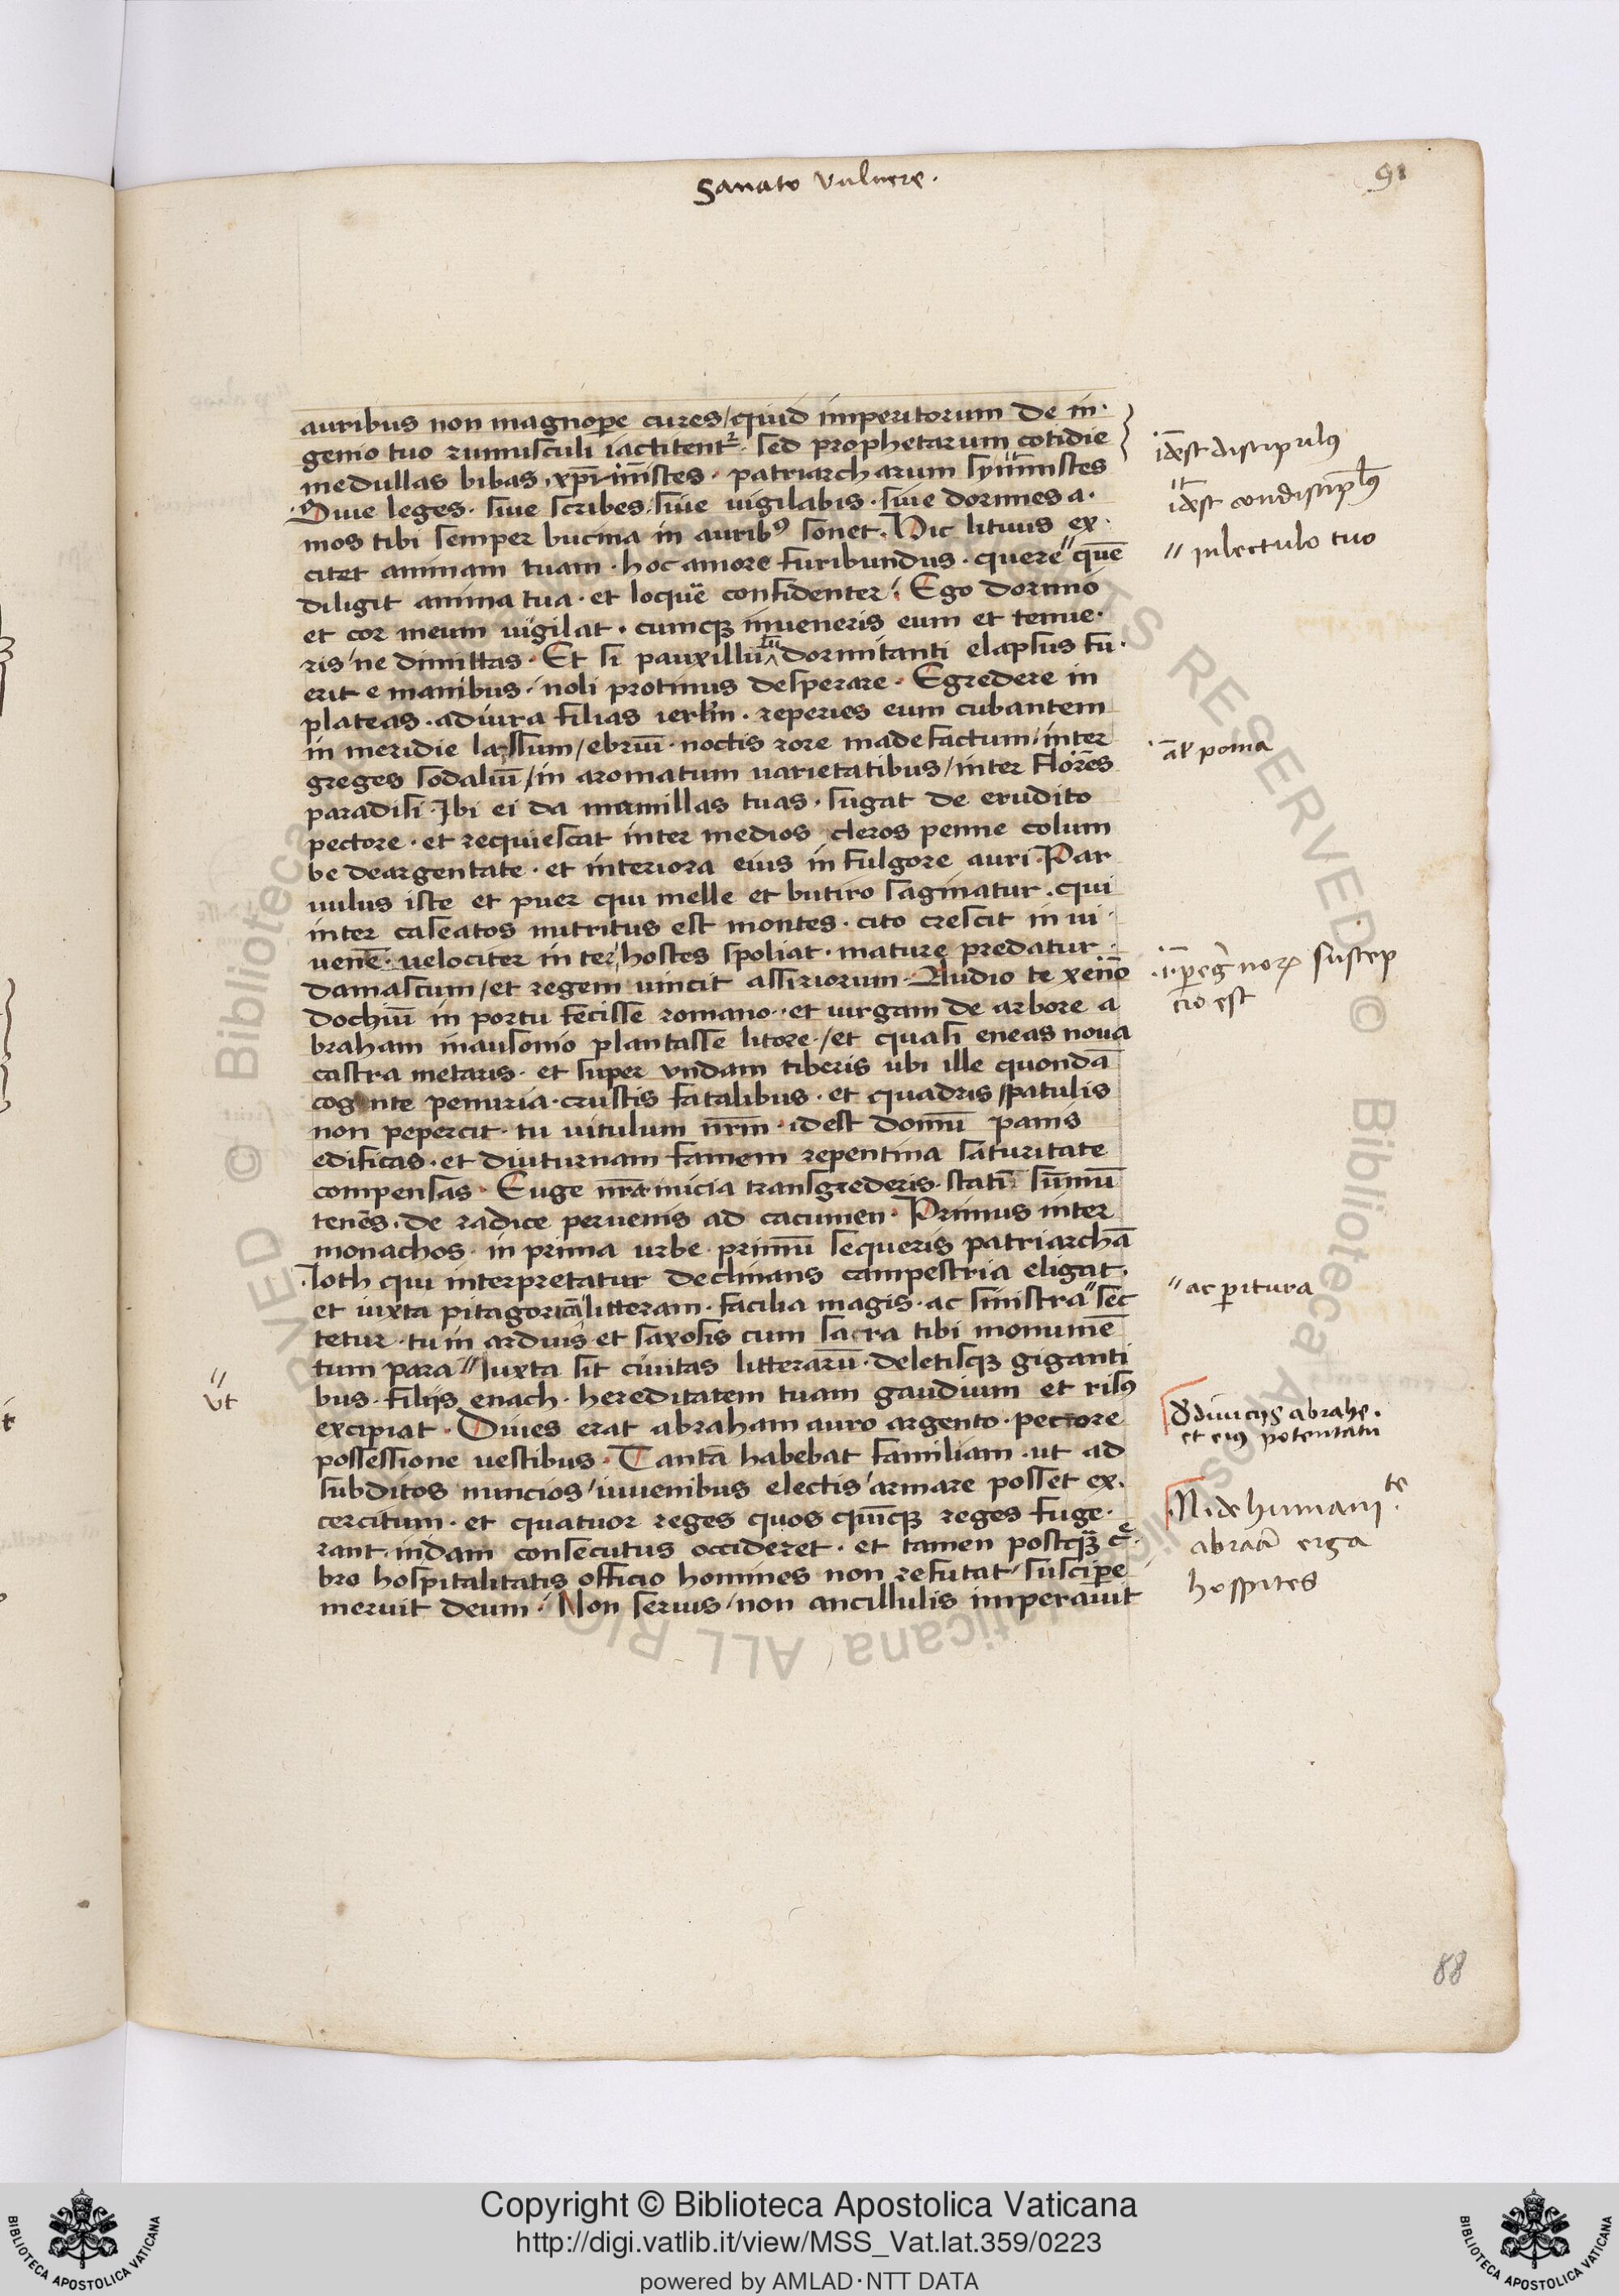 Sanato vulnere.
91
auribus non magnopere cures / quid imperitorum de in·
genio tuo rumusculi iactitent᷑· sed prophetarum cotidie
medullas bibas, xp̄i mistes · patriarcharum symmistes
Siue leges · siue scribes, siue uigilabis · siue dormies a·
mos tibi semper bucina in aurib⁹ sonet · Hic lituus ex·
citet animam tuam · hoc amore furibundus · quere " quē
diligit anima tua · et loquē confidenter · Ego dormio
et cor meum uigilat · cumqȝ inueneris eum et tenue·
ris / ne dimittas · Et si pauxillū dormitanti elapsus fu·
erit e manibus · noli protinus desperare · Egredere in
plateas · adiura filias ierlm̄ · reperies eum cubantem
in meridie lassum / ebriū · noctis rore madefactum / inter
greges sodaliū / in aromatum uarietatibus / inter flores
paradisi · Ibi ei da mamillas tuas · sugat de erudito
pectore · et requiescat inter medios cleros penne colum
be deargentate · et interiora eius in fulgore auri · Par
uulus iste et puer qui melle et butiro saginatur · qui
inter caseatos nutritus est montes · cito crescit in iu·
uenē · uelociter in te hostes spoliat · mature predatur ·
damascum / et regem uincit assiriorum · Audio te xeno
dochiū in portu fecisse romano · et uirgam de arbore a
braham in ausonio plantasse litore · / et quasi eneas noua
castra metaris · et super vndam tiberis ubi ille quondā
cogente penuria · crustis fatalibus · et quadris spatulis
non pepercit · tu uitulum nr̄m · idest domū panis
edificas · et diuturnam famem repentina saturitate
compensas · Euge nr̄a inicia transgrederis · statī summū
tenēs · de radice peruenis ad cacumen · Primus inter
monachos · in prima urbe · primū sequeris patriarchā
loth qui interpretatur declinans campestria eligat ·
et iuxta pitagoricā litteram · facilia magis · ac sinistra " sec
tetur · tu in arduis et saxosis cum sacra tibi monumē
tum para " Iuxta sit ciuitas litterarū · deletisqȝ giganti
bus · filijs enach · hereditatem tuam gaudium et ris⁹
excipiat · Diues erat abraham auro argento · pectore
possessione uestibus · Tantā habebat familiam · ut ad
subditos nuncios / iuuenibus electis / armare posset ex·
cercitum · et quatuor reges quos quinqȝ reges fuge·
rant · indam consecutus occideret · et tamen postqȝ cē·
bro hospitalitatis officio homines non refutat / suscipe
meruit deum · Non seruis / non ancillulis imperauit
idest discipulus
idest condiscipl⁹
" in lectulo tuo
al' poma
·i· peregnoꝝ suscep
tio est
" ac peritura
"
vt
De diuicijs abrahe ·
et eius potentatu
N. de humani te
abraā erga
hospites
88
Copyright © Biblioteca Apostolica Vaticana
http://digi.vatlib.it/view/MSS_Vat.lat.359/0223
powered by AMLAD·NTT DATA
BIBLIOTECA APOSTOLICA VATICANA
BIBLIOTECA APOSTOLICA VATICANA